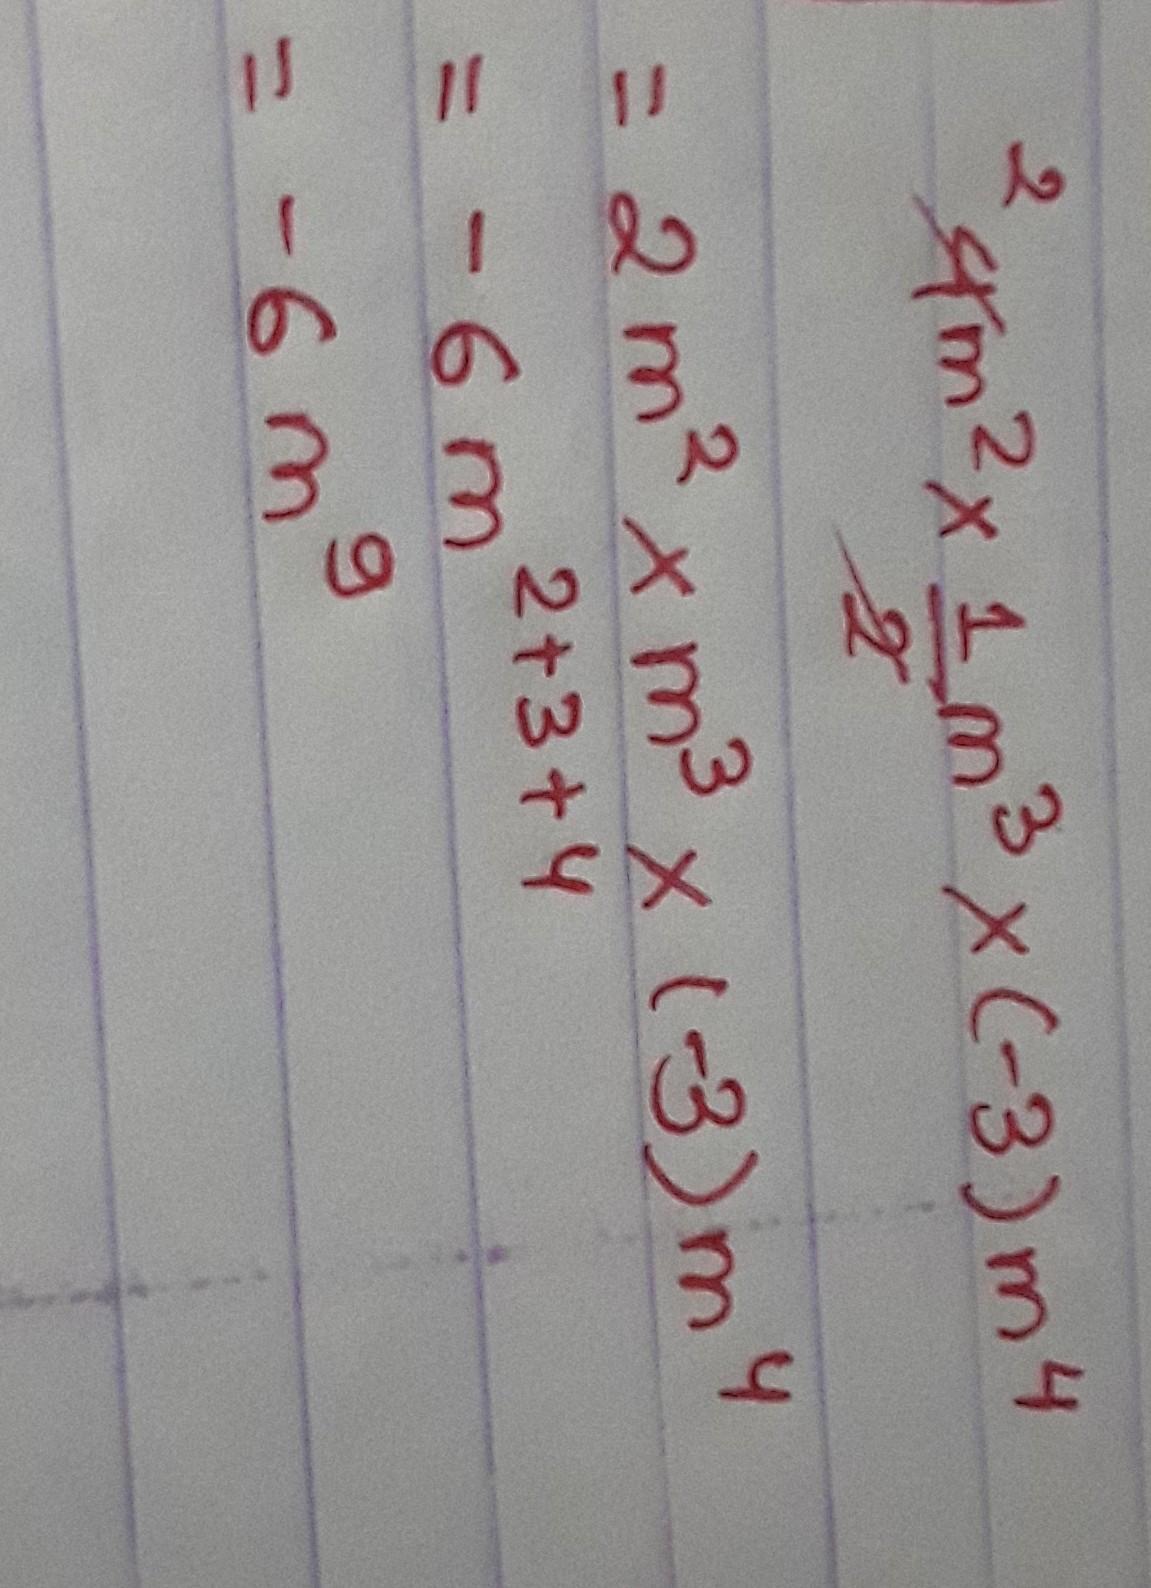 ²4m² × 1/2 m³ × (-3) m⁴
= 2m² × m³ × (-3) m⁴
= - 6 m²⁺³⁺⁴
= - 6 m⁹